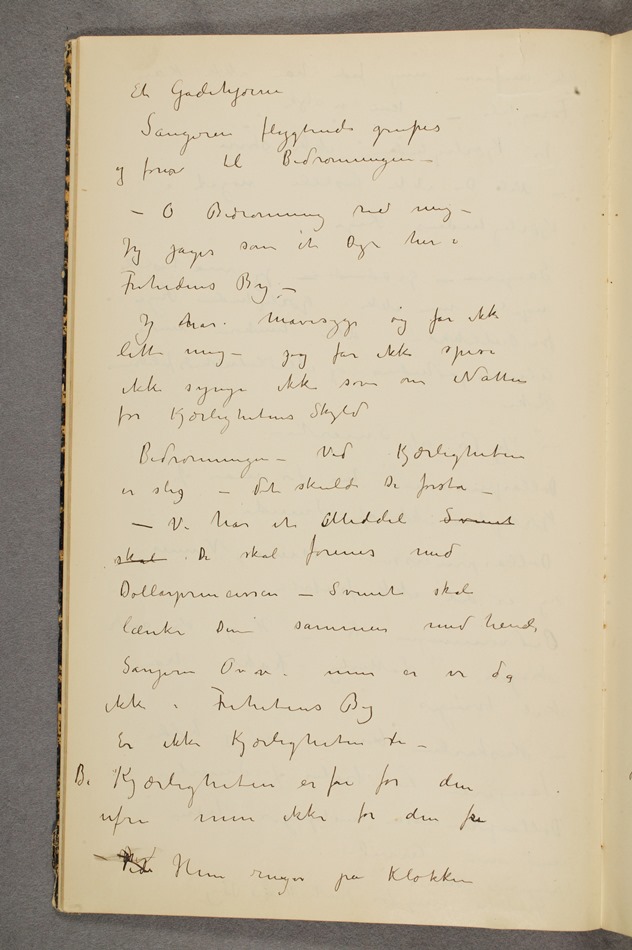 Et Gadehjørne
Sangeren flygtende gribes
og føres til Bedrøvningen —
— O Bedrøvning red mig —
Jeg jages som et Dyr her i
Frihedens By —
Jeg har Mavesyge og får ikke
lette mig — jeg får ikke spise
ikke synge ikke sove om Natten
for Kjærlighetens Skyld
Bedrøvningen — Ved Kjærligheten
er slig — det skulde De forstå —
— Vi har et Middel Svinet
skal De skal forenes med
Dollarprincessen — Svinet skal
lænke Dem sammen med hende
Sangeren O v. v. men er vi da
ikke i Frihetens By
Er ikke Kjærligheten fri —
B. Kjærligheten er fri for den
ufri men ikke for den fri
Hun ringer på Klokken